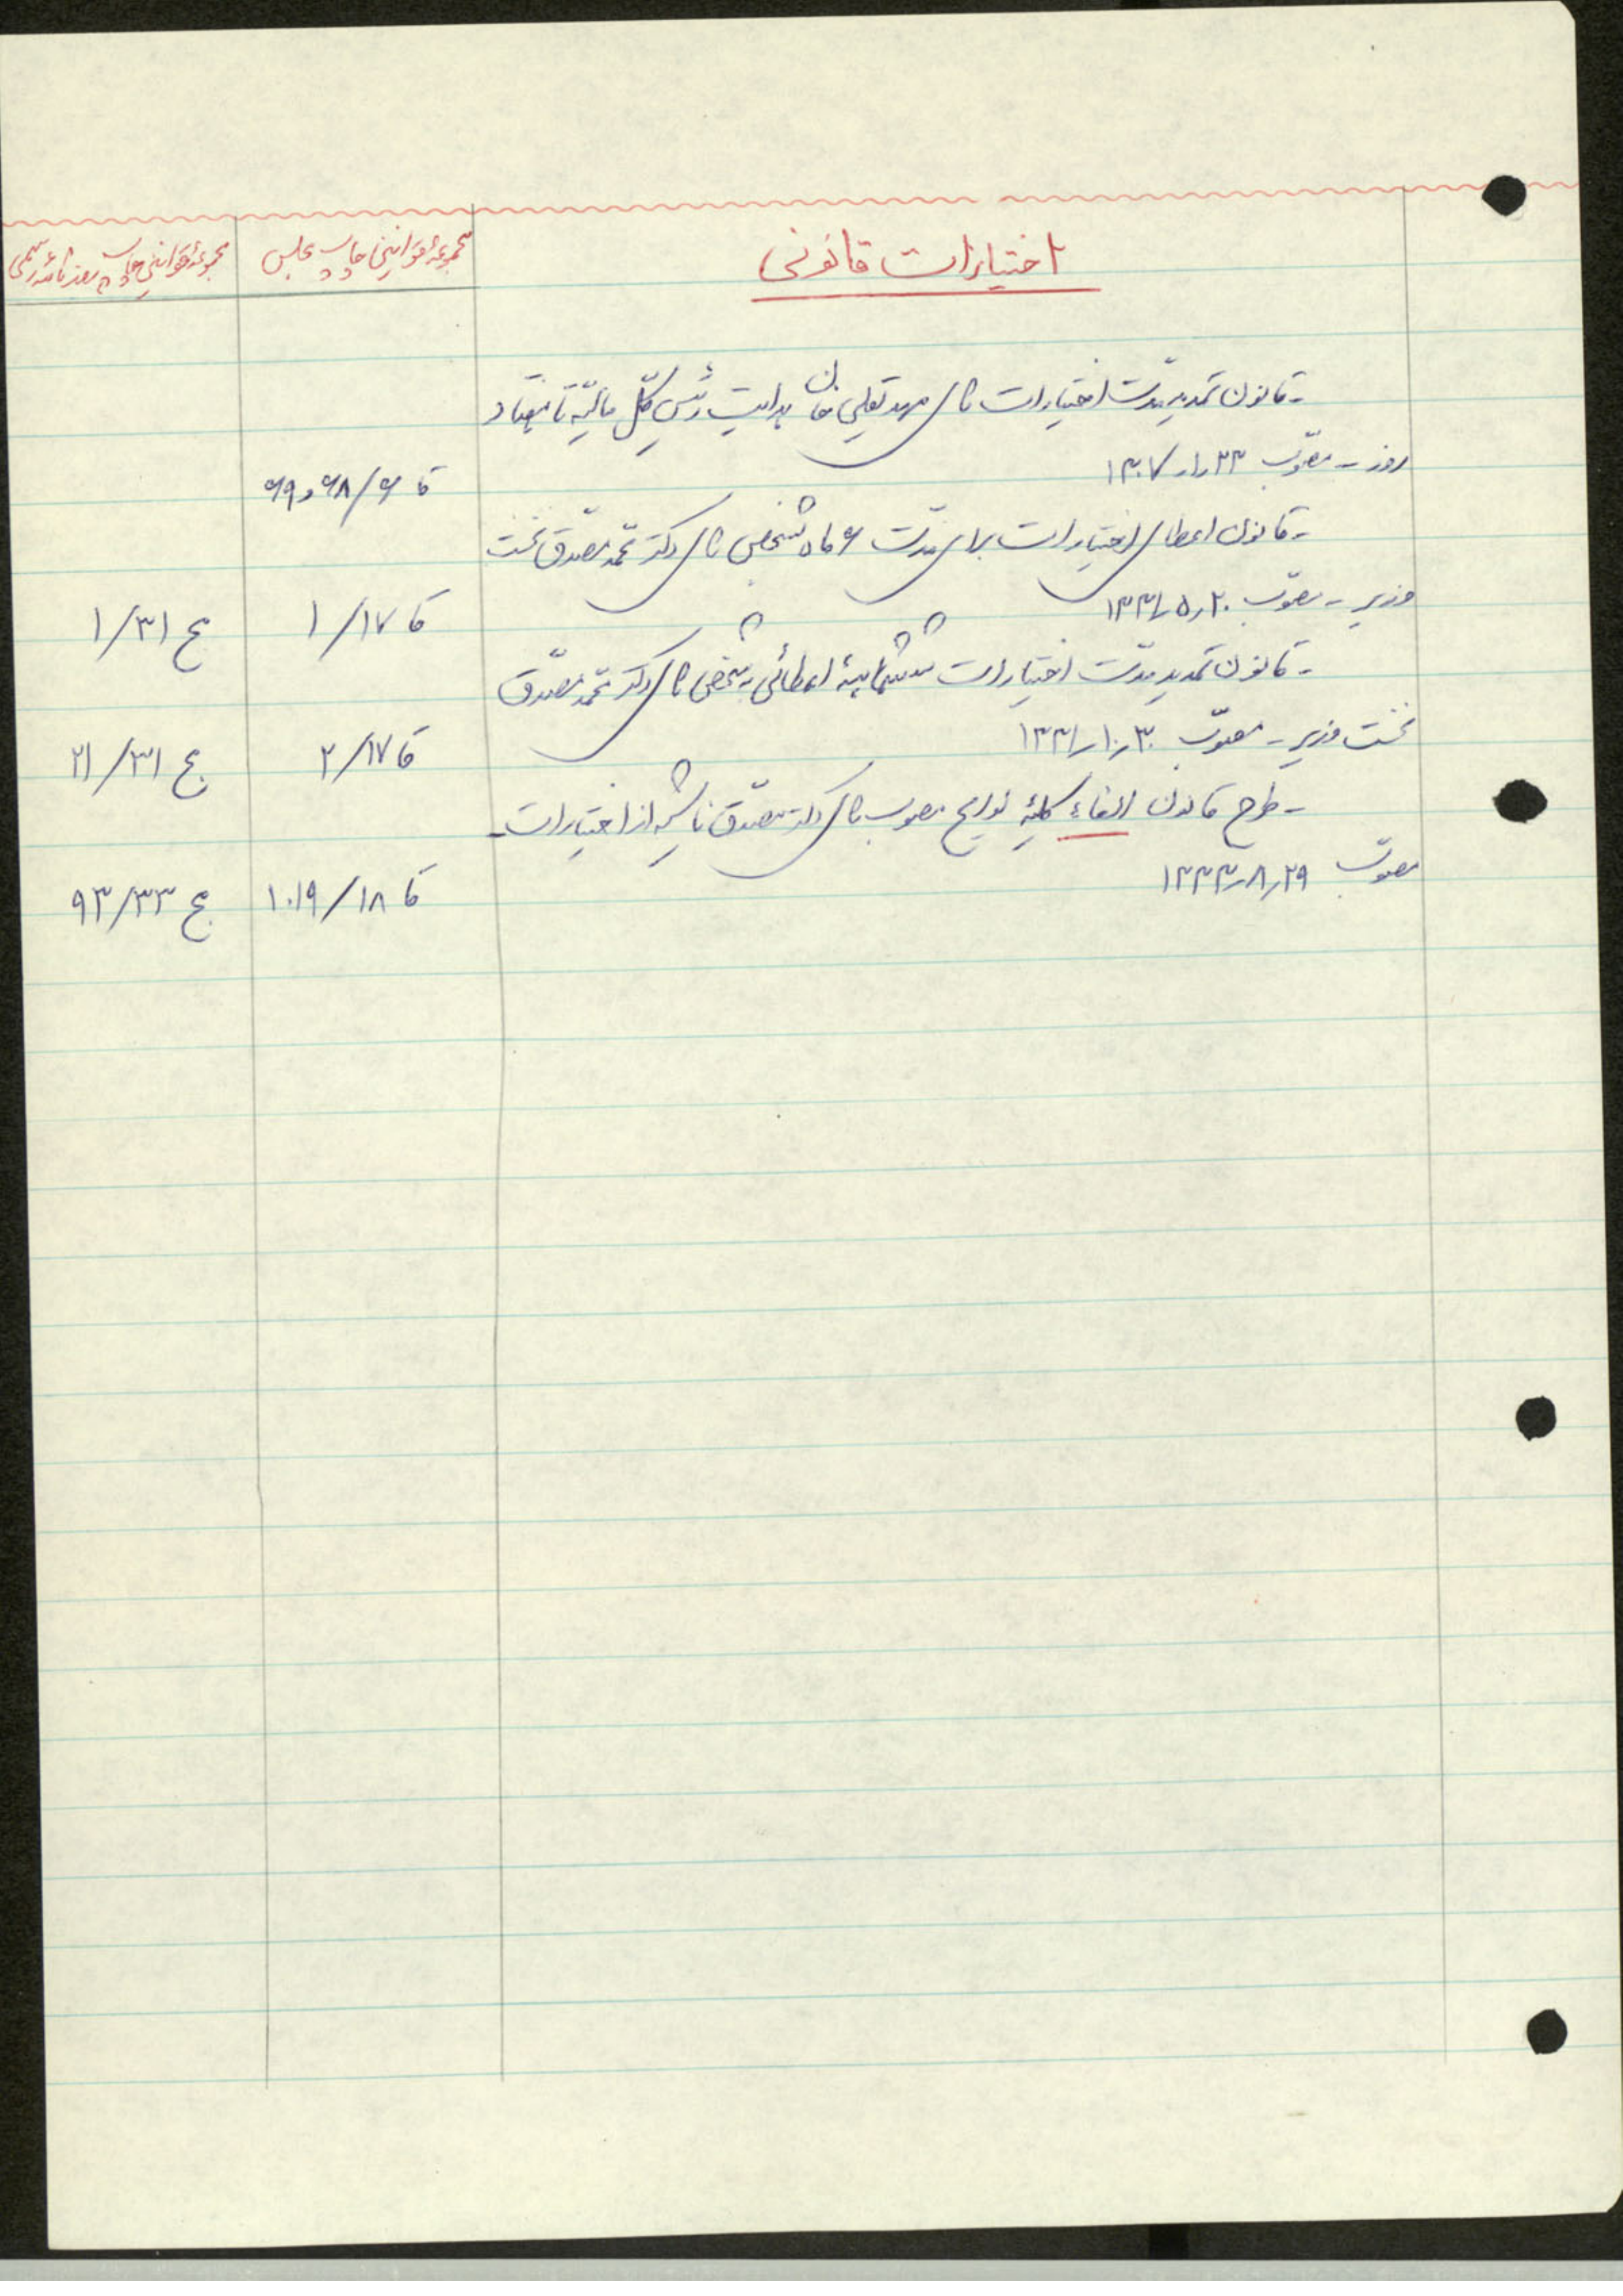 اختیارات قانونی
مجموعهٔ قوانین چاپ مجلس
مجموعهٔ قوانین چاپ روزنامهٔ رسمی
- قانون تمدید مدّت اختیارات آقای مهدیقلی خان هدایت رئیس کلّ مالیّه تا هفتاد
روز - مصوّب ۱۳۰۷/۱/۲۳
قا ۶/۶۸ و ۶۹
- قانون اعطای اختیارات برای مدّت ۶ ماه بشخص آقای دکتر محمّد مصدّق نخست
وزیر - مصوّب ۱۳۳۱/۵/۲۰
قا ۱۷/۱
مج ۳۱/۱
- قانون تمدید مدّت اختیارات ششماههٔ اعطائی بشخص آقای دکتر محمّد مصدّق
نخست وزیر - مصوّب ۱۳۳۱/۱۰/۳۰
قا ۱۷/۲
مج ۳۱/۲۱
- طرح قانون الغاء کلیّهٔ لوایح مصوب آقای دکتر مصدّق ناشیه از اختیارات -
مصوّب ۱۳۳۳/۸/۲۹
قا ۱۸/۱۰۱۹
مج ۳۳/۹۳